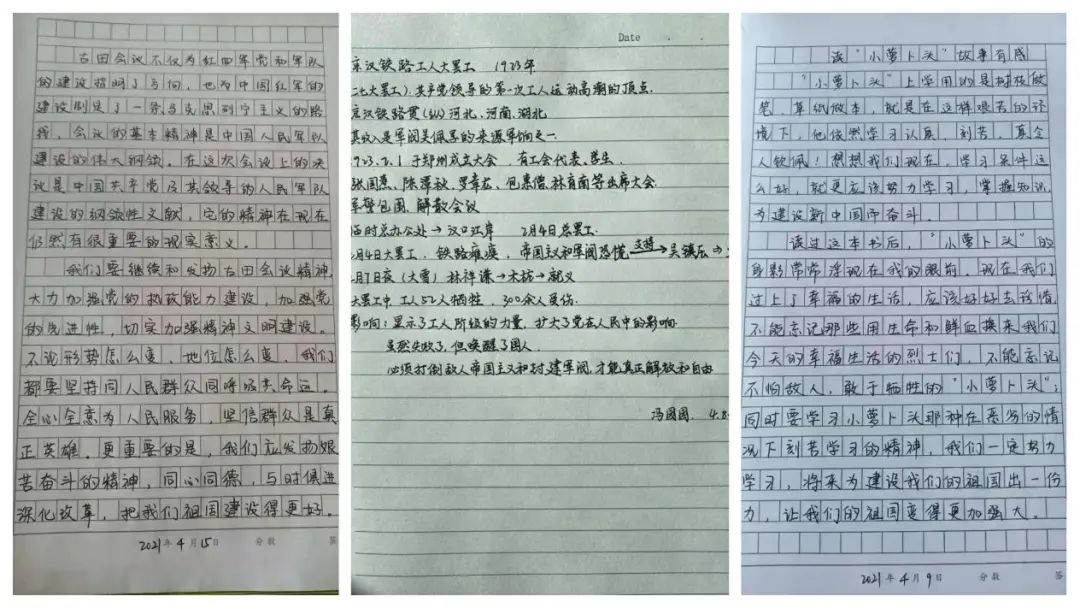 古田会议不仅为红四军党和军队
的建设指明了方向，也为中国红军的
建设制定了一条马克思列宁主义的路
线，会议的基本精神是中国人民军队
建设的伟大纲领。在这次会议上的决
议是中国共产党及其领导的人民军队
建设的纲领性文献，它的精神在现在
仍然有很重要的现实意义。
我们要继续和发扬古田会议精神
大力加强党的执政能力建设，加强党
的先进性，切实加强精神文明建设。
不论形势怎么变，地位怎么变，我们
都要坚持同人民群众同呼吸共命运。
全心全意为人民服务，坚信群众是真
正英雄。更重要的是，我们应发扬艰
苦奋斗的精神，同心同德，与时俱进
深化改革，把我们祖国建设得更好。
2021年4月15日 分数 签
Date . .
京汉铁路工人大罢工 1923年
(二七大罢工)：共产党领导的第一次工人运动高潮的顶点.
京汉铁路贯(纵)河北、河南、湖北
其收入是军阀吴佩孚的来源军饷之一.
1923.2.1 于郑州成立大会，有工会代表、学生.
张国焘、陈潭秋、罗章龙、包惠僧、林育南等出席大会.
军警包围、解散会议
临时总办公处→汉口江岸 2月4日总罢工.
2月4日大罢工. 铁路瘫痪. 帝国主义和军阀恐慌 支持→ 吴镇压⇒
2月7日夜(大雪)林祥谦→木桩→就义
大罢工中，工人52人牺牲，300余人受伤.
影响：显示了工人阶级的力量，扩大了党在人民中的影响.
虽然失败了，但唤醒了国人.
必须打倒敌人帝国主义和封建军阀，才能真正解放和自由
冯圆圆. 4.8
读"小萝卜头"故事有感
"小萝卜头"上学用的是树枝做
笔，草纸做本，就是在这样艰苦的环
境下，他依然学习认真，刻苦，真令
人钦佩！想想我们现在，学习条件这
么好，就更应该努力学习，掌握知识
为建设新中国而奋斗。
读过这本书后，"小萝卜头"的
身影常常浮现在我的眼前，现在我们
过上了幸福的生活，应该好好去珍惜
不能忘记那些用生命和鲜血换来我们
今天的幸福生活的烈士们，不能忘记
不怕敌人，敢于牺牲的"小萝卜头"；
同时要学习小萝卜头那种在恶劣的情
况下刻苦学习的精神，我们一定努力
学习，将来为建设我们的祖国出一份
力，让我们的祖国变得更加强大。
2021年4月9日 分数 签